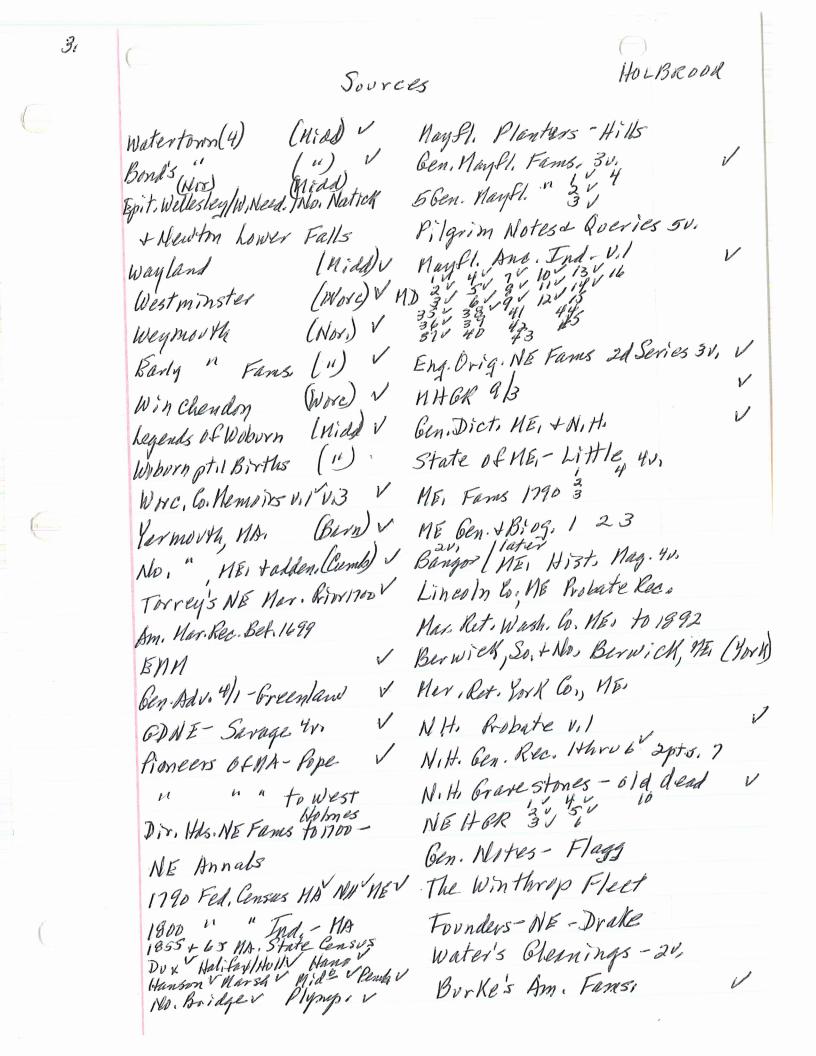 3.
HOLBROOK
Sources
Watertown (4) (Midd) ✓
Bond's " (") ✓
(Nor) (Midd)
Epit. Wellesley/W. Need./No. Natick
+ Newton Lower Falls
Wayland (Midd) ✓
Westminster (Worc) ✓
Weymouth (Nor.) ✓
Early " Fams. (") ✓
Winchendon (Worc) ✓
Legends of Woburn (Midd) ✓
Woburn pt. 1 Births (")
Worc. Co. Memoirs v.1 ✓ v.3 ✓
Yarmouth, MA. (Barn) ✓
No. ", ME. + adden. (Cumb) ✓
Torrey's NE Mar. Prior 1700 ✓
Am. Mar. Rec. Bef. 1699
EMM ✓
Gen. Adv. 4/1 - Greenlaw ✓
GDNE - Savage 4v. ✓
Pioneers of MA - Pope ✓
" " " to West
Holmes
Dir. Hds. NE Fams to 1700 -
NE Annals
1790 Fed. Census MA ✓ NH ✓ ME ✓
1800 " " Ind. - MA
1855 + 65 MA. State Census
Dux ✓ Halifax/Hull ✓ Hano ✓
Hanson ✓ Marsh ✓ Mid ✓ Pemb ✓
No. Bridge ✓ Plymp. ✓
Mayfl. Planters - Hills
Gen. Mayfl. Fams. 3v. ✓
1 ✓ 4
5 Gen. Mayfl. " 2 ✓
3 ✓
Pilgrim Notes & Queries 5v.
Mayfl. Anc. Ind. - v.1 ✓
1 ✓ 4 ✓ 7 ✓ 10 ✓ 13 ✓ 16
MD 2 ✓ 5 ✓ 8 ✓ 11 ✓ 14 ✓
3 ✓ 6 ✓ 9 ✓ 12 ✓ 15
35 ✓ 38 ✓ 41 44
36 ✓ 39 42 45
37 ✓ 40 43
Eng. Orig. NE Fams 2d Series 3v. ✓
MHGR 9/3 ✓
Gen. Dict. ME. + N.H. ✓
State of ME. - Little 4v.
1 4
2
ME. Fams 1790 3
ME Gen. + Biog. 1 2 3
2v. later
Bangor / ME. Hist. Mag. 4v.
Lincoln Co., ME Probate Rec.
Mar. Ret. Wash. Co. ME. to 1892
Berwick, So. + No. Berwick, ME. (York)
Mar. Ret. York Co., ME.
NH. Probate v.1 ✓
N.H. Gen. Rec. 1 thru 6 ✓ 2pts. 7
N.H. Gravestones - old dead ✓
1 ✓ 4 ✓ 10
NEHGR 2 ✓ 5 ✓
3 ✓ 6
Gen. Notes - Flagg
The Winthrop Fleet
Founders - NE - Drake
Water's Gleanings - 2v.
Burke's Am. Fams. ✓